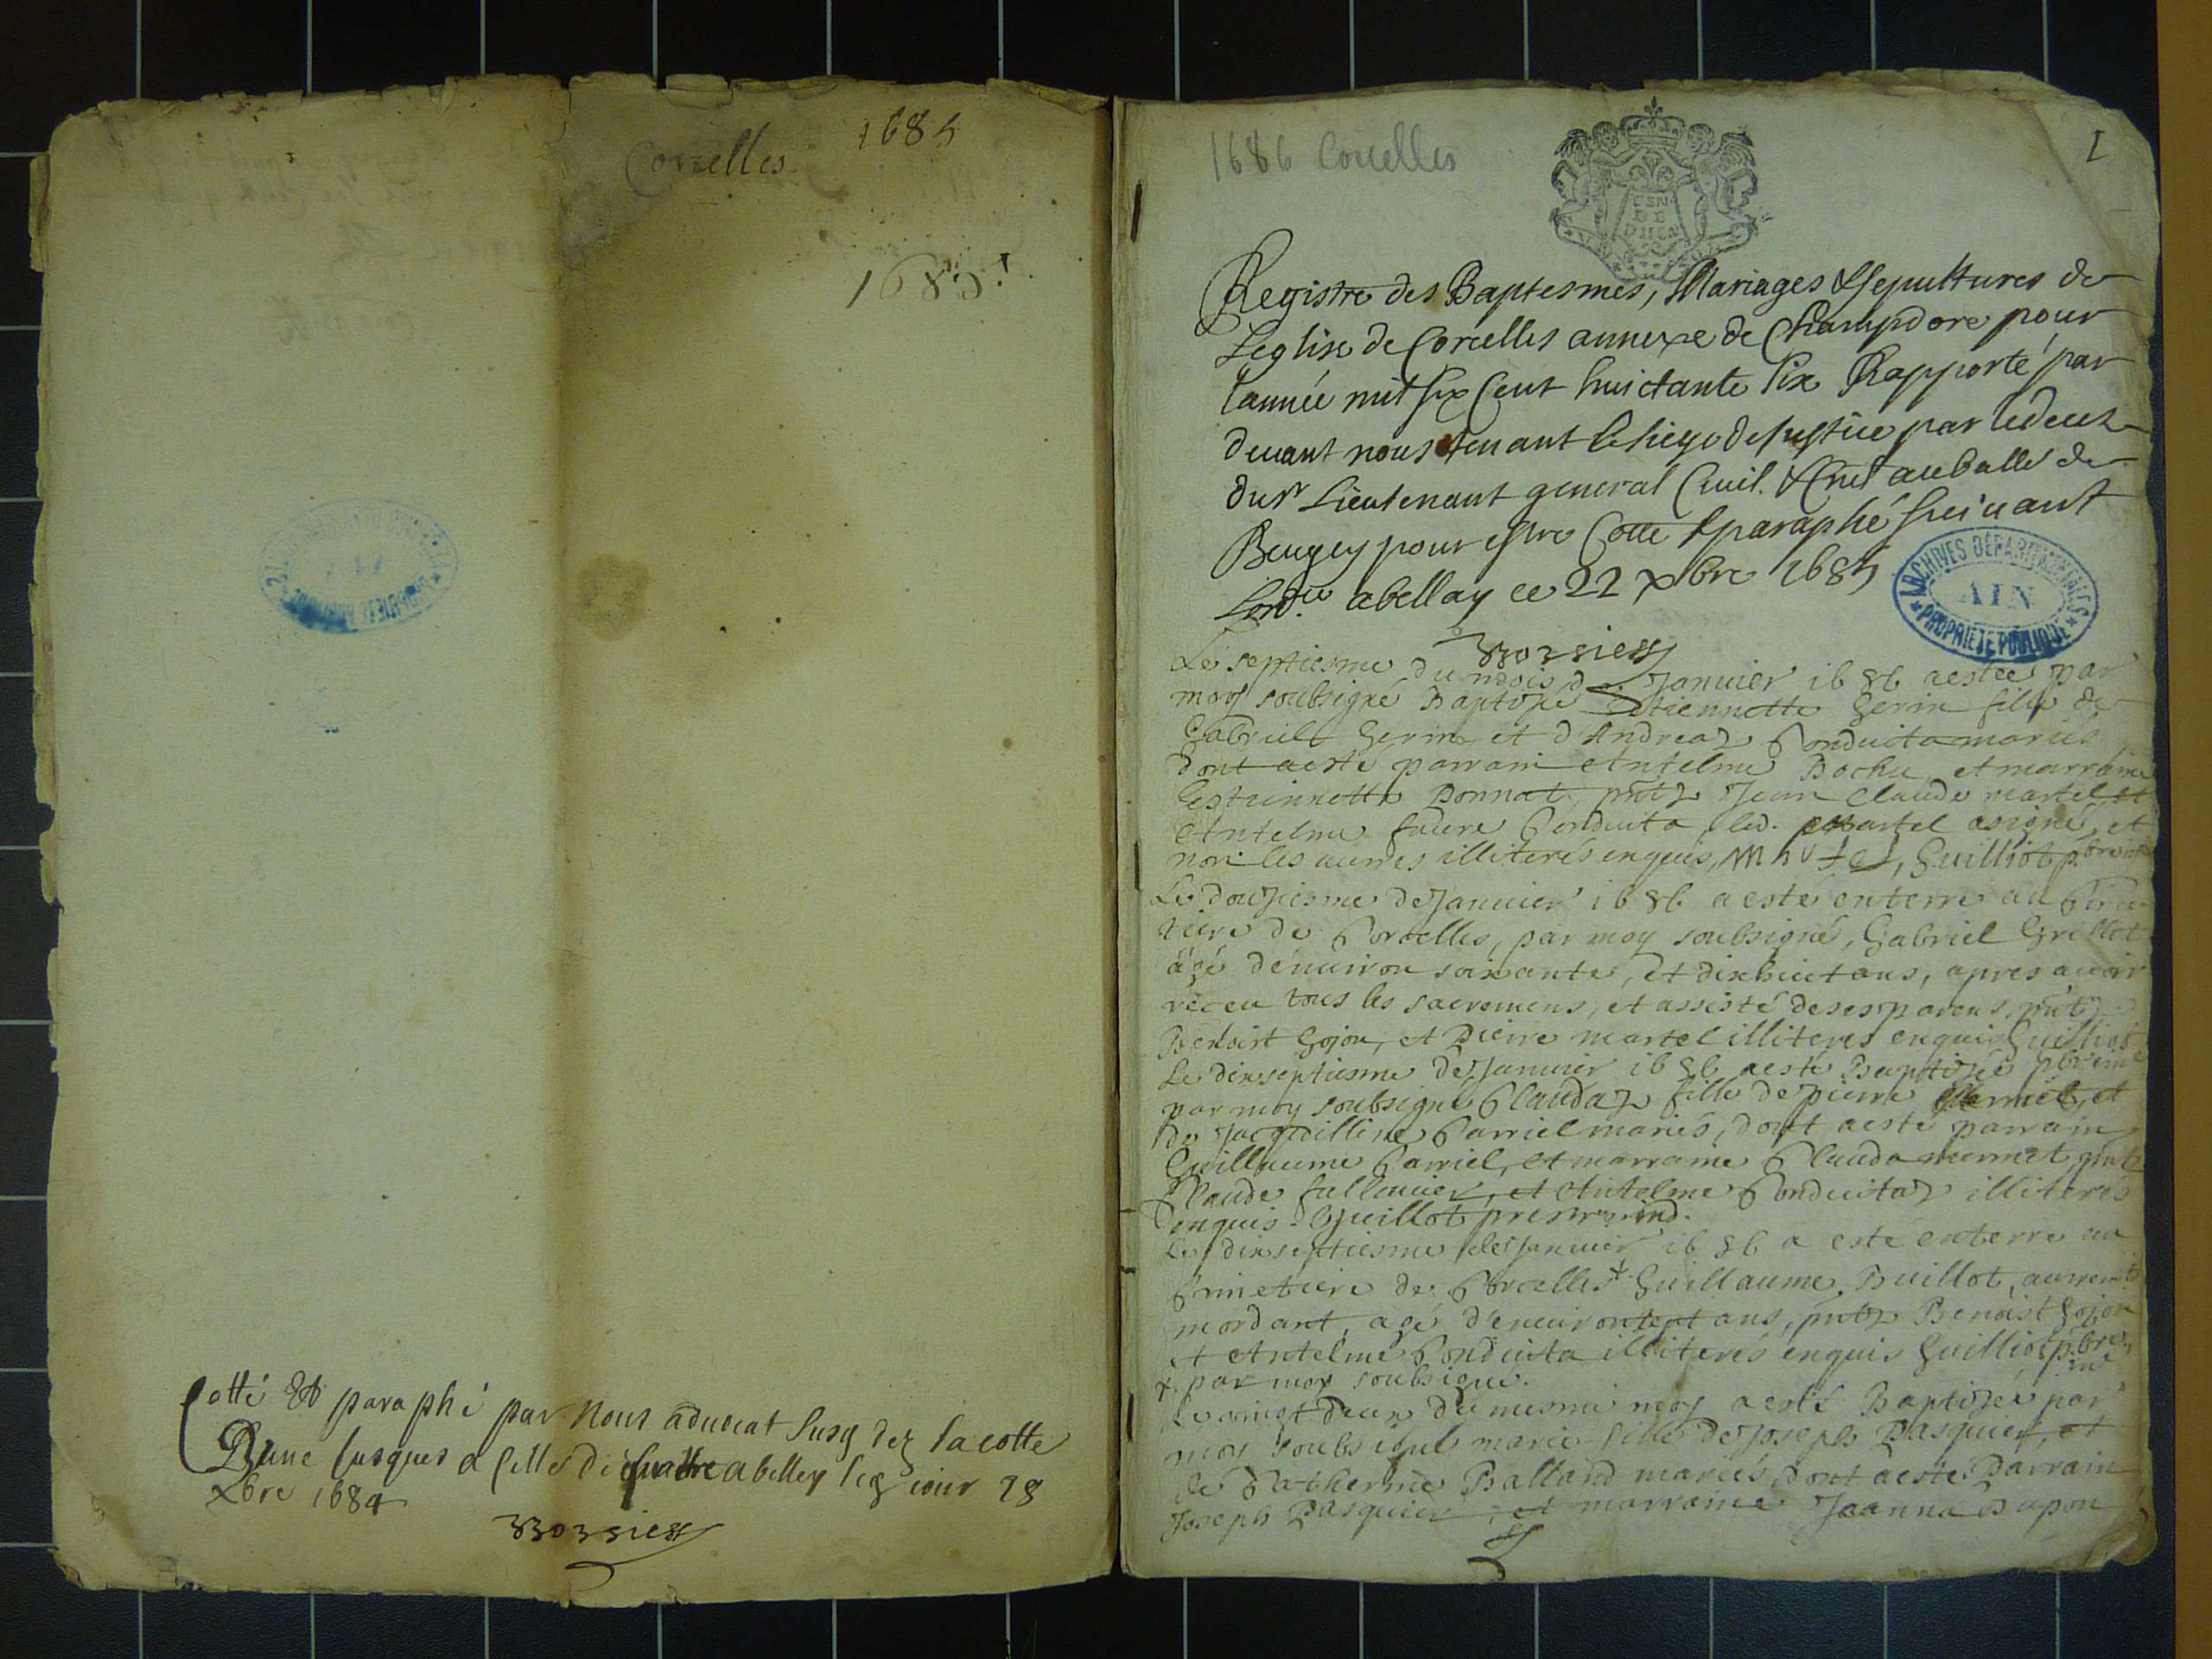 Corcelles 1685
1685
Cotté & paraphé par nous aduocat susd
D'une jusques a celle de quatre a belley
xbre 1684
1686 Corcelles
I
GEN
DE
Registre des Baptesmes, Mariages & sepultures de
Leglise de Corcelles annexe de Champdore pour
lannée mil six Cent huictante six Rapporté par
deuant nous tenant le siege de Justice par le deces
du sr Lieutenant general Ciuil. & Crel au balle de
Beugey pour estre Cotté & paraphé suiuant
Lordce a bellay ce 22 xbre 1685
ARCHIVES DÉPARTEMENTALES
AIN
PROPRIÉTÉ PUBLIQUE
Le septiesme du mois de Januier 1686 a estée par
moy soubsigné Baptizée Estiennette Gerin fille de
Gabriel Gerin et d'Andreaz Conduita mariés
dont a esté parrain Antelme Bochu, et marraine
Estiennette Bonnat, pntz Jean Claude martel et
Antelme faure Conduita, led. Martel a signé, et
non les autres illiterés enquis, Martel, Guilliot pbre
Le douziesme de Januier 1686 a esté enterré au Cime
tiere de Corcelles, par moy soubsigné, Gabriel Grillot
âgé d'enuiron soixante, et dixhuict ans, apres auoir
receu tous les sacremens, et assisté de ses parens, pntz
Benoist Gojon, et Pierre martel illiterés enquis Guilliot
Le dixseptiesme de Januier 1686 a esté Baptizée
par moy soubsigné Claudaz fille de pierre Mermet, et
de Jacquelline Carriel mariés, dont a esté parrain
Guillaume Carriel, et marraine Clauda mermet, pntz
Claude fallauier, et Antelme Conduitaz illiterés
enquis. Guilliot prestre ind.
Le dixseptiesme de Januier 1686 a esté enterré au
Cimetiere de Corcelles + Guillaume Buillot, autrement
mordant, agé d'enuiron sept ans, pntz Benoist Gojon
et Antelme Conduita illiterés enquis Guilliot pbre
+ par moy soubsigné.
Le vingt deux du mesme moy a esté Baptizée par
moy soubsigné marie fille de Joseph Pasquier, et
de Catherine Balland mariés, dont a esté Parrain
Joseph Pasquier, et marraine Jeanna Bapon